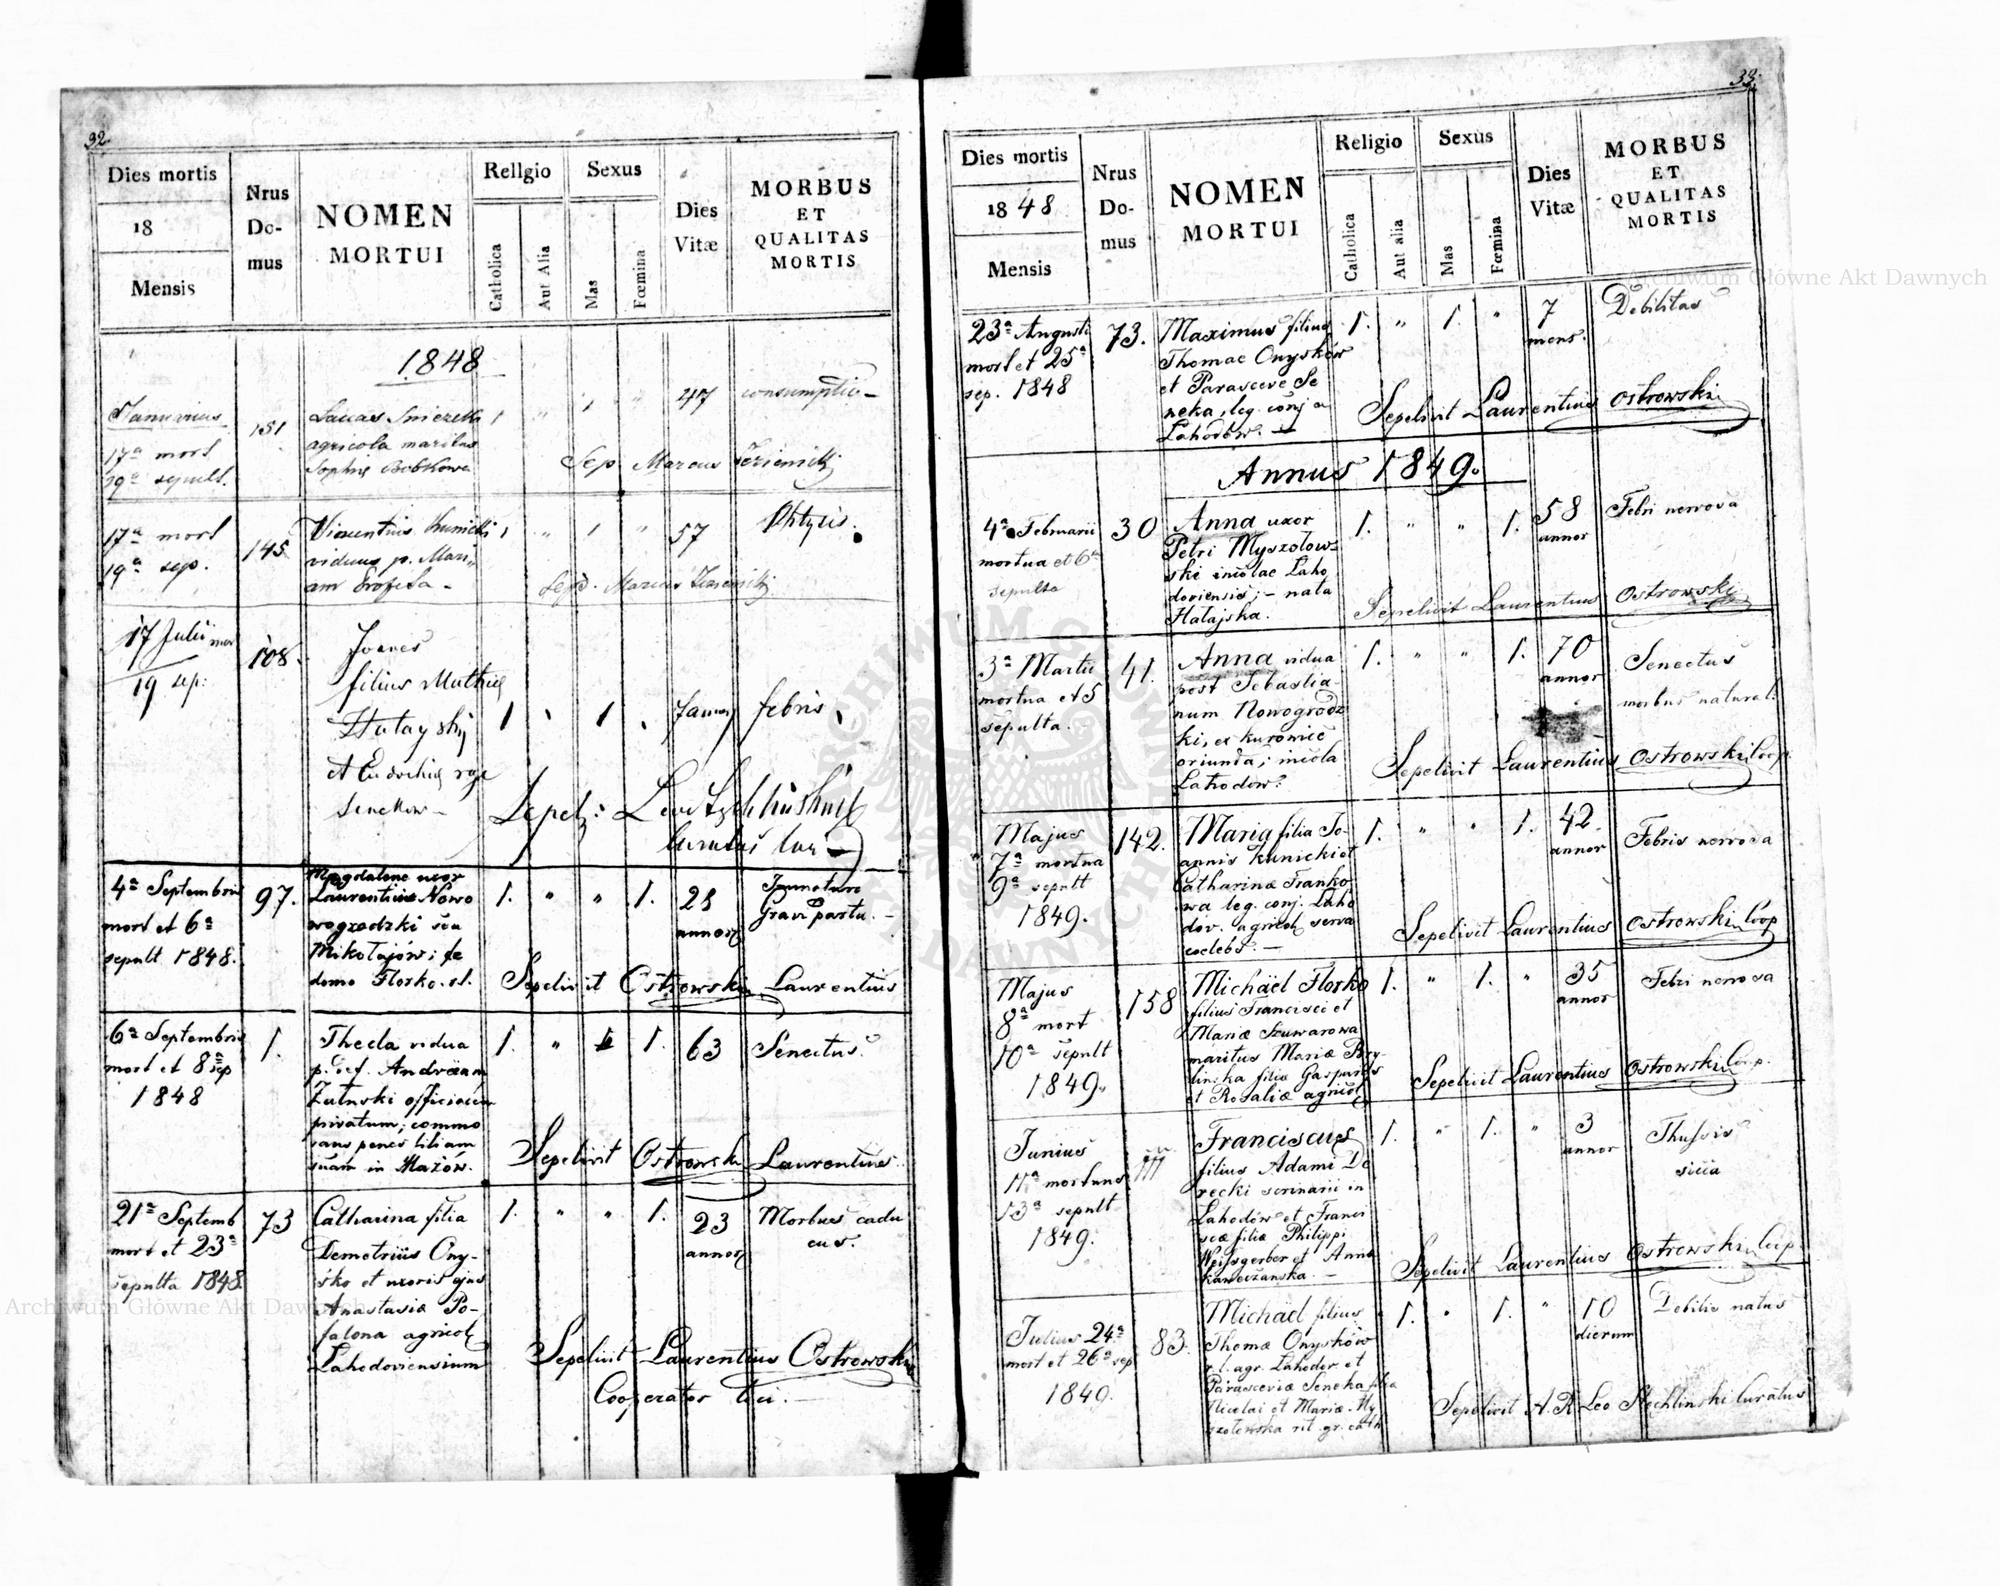 32.
Dies mortis
18
Mensis
Nrus
Do-
mus
NOMEN
MORTUI
Religio
Catholica
Aut Alia
Sexus
Mas
Fœmina
Dies
Vitæ
MORBUS
ET
QUALITAS
MORTIS
1848
Januarius
17ª mort
19ª sepult.
151
Lucas
agricola maritus
Sophiæ Bobkowa
1 " 1 "
47
consumptio
Sep Marcus
17ª mort
19ª sep.
145
Vincentius Kunicki
viduus p. Mari
am
1 " 1 "
57
Phtysis.
Sep. Marcus
17 Julii mor
19 sep:
108.
Joanes
filius Mathiæ
Hatayskij
et Eudochiæ
Senekow
1 1
febris
Sepel:
Curatus
4ª Septembris
mort et 6ª
sepult 1848.
97.
Magdalena uxor
Laurentius Nowo
wogrodzki
Mikołajów; de
domo Florko.
1. " " 1.
28
annor
Gravi partu.
Sepelivit Ostrowski Laurentius
6ª Septembris
mort et 8ª sep
1848
1.
Thecla vidua
p. def. Andream
Zutnski officialem
privatum; commo
rans penes filiam
suam in
1. " 1.
63
Senectus.
Sepelivit Ostrowski Laurentius.
21ª Septemb
mort et 23ª
sepulta 1848.
73
Catharina filia
Demetrius Ony-
sko et uxoris ejus
Anastasia Po-
falona agricol
Lahodoviensium
1. " " 1.
23
annor
Morbus cadu
cus.
Sepelivit Laurentius Ostrowski
Cooperator loci.
33.
Dies mortis
1848
Mensis
Nrus
Do-
mus
NOMEN
MORTUI
Religio
Catholica
Aut alia
Sexus
Mas
Fœmina
Dies
Vitæ
MORBUS
ET
QUALITAS
MORTIS
23ª Augusti
mort et 25ª
sep. 1848
73.
Maximus filius
Thomae Onysków
et Parasceve Se
neka, leg. conj a
Lahodów.
1. " 1. "
7
mens.
Debilitas
Sepelivit Laurentius Ostrowski
Annus 1849.
4ª Februarii
mortua et 6ª
sepulta
30
Anna uxor
Petri Myszolow-
ski incolae Laho
doviensis; - nata
Hatajska.
1. " " 1.
58
annor
Febri nervosa
Sepelivit Laurentius Ostrowski
3ª Martii
mortua et 5
sepulta.
41.
Anna vidua
post Sebastia-
num Nowogrodz
ki, ex Kurowic
oriunda; incola
Lahodow.
1. " " 1.
70
annor
Senectus
morbus natural.
Sepelivit Laurentius Ostrowski Coop.
Majus
7ª mortua
9ª sepult
1849.
142.
Maria filia Jo-
annis Kunicki et
Catharinæ Franko
wa leg. conj. Laho
dov. agricol serva
coelebs. -
1. " " 1.
42.
annor
Febris nervosa
Sepelivit Laurentius Ostrowski Coop
Majus
8ª mort
10ª sepult
1849.
158
Michäel Florko
filius Francisci et
Mariæ Szuwarowa
maritus Mariæ Bry-
linska filiæ Gasparis
et Rosaliæ agricol
1. " 1. "
35
annor
Febri nervosa
Sepelivit Laurentius Ostrowski Coop.
Junius
11ª mortuus
13ª sepult
1849.
Franciscus
filius Adami De
recki scrinarii in
Lahodów et Franci
scæ filiæ Philippi
Weissgerber et Anna
1. " 1. "
3
annor
Thussis
sicca
Sepelivit Laurentius Ostrowski Coop.
Julius 24ª
mort et 26ª sep
1849.
83.
Michäel filius
Thomæ Onysków
r. l. agr. Lahodov et
Parasceviæ Seneka filia
Nicolai et Mariæ My
szolowska rit. gr. cath
1. " 1. "
10
dierum
Debilis natus
Sepelivit A. R. Leo Stechlinski Curatus
Archiwum Główne Akt Dawnych
Archiwum Główne Akt Dawnych
ARCHIWUM GŁÓWNE AKT DAWNYCH